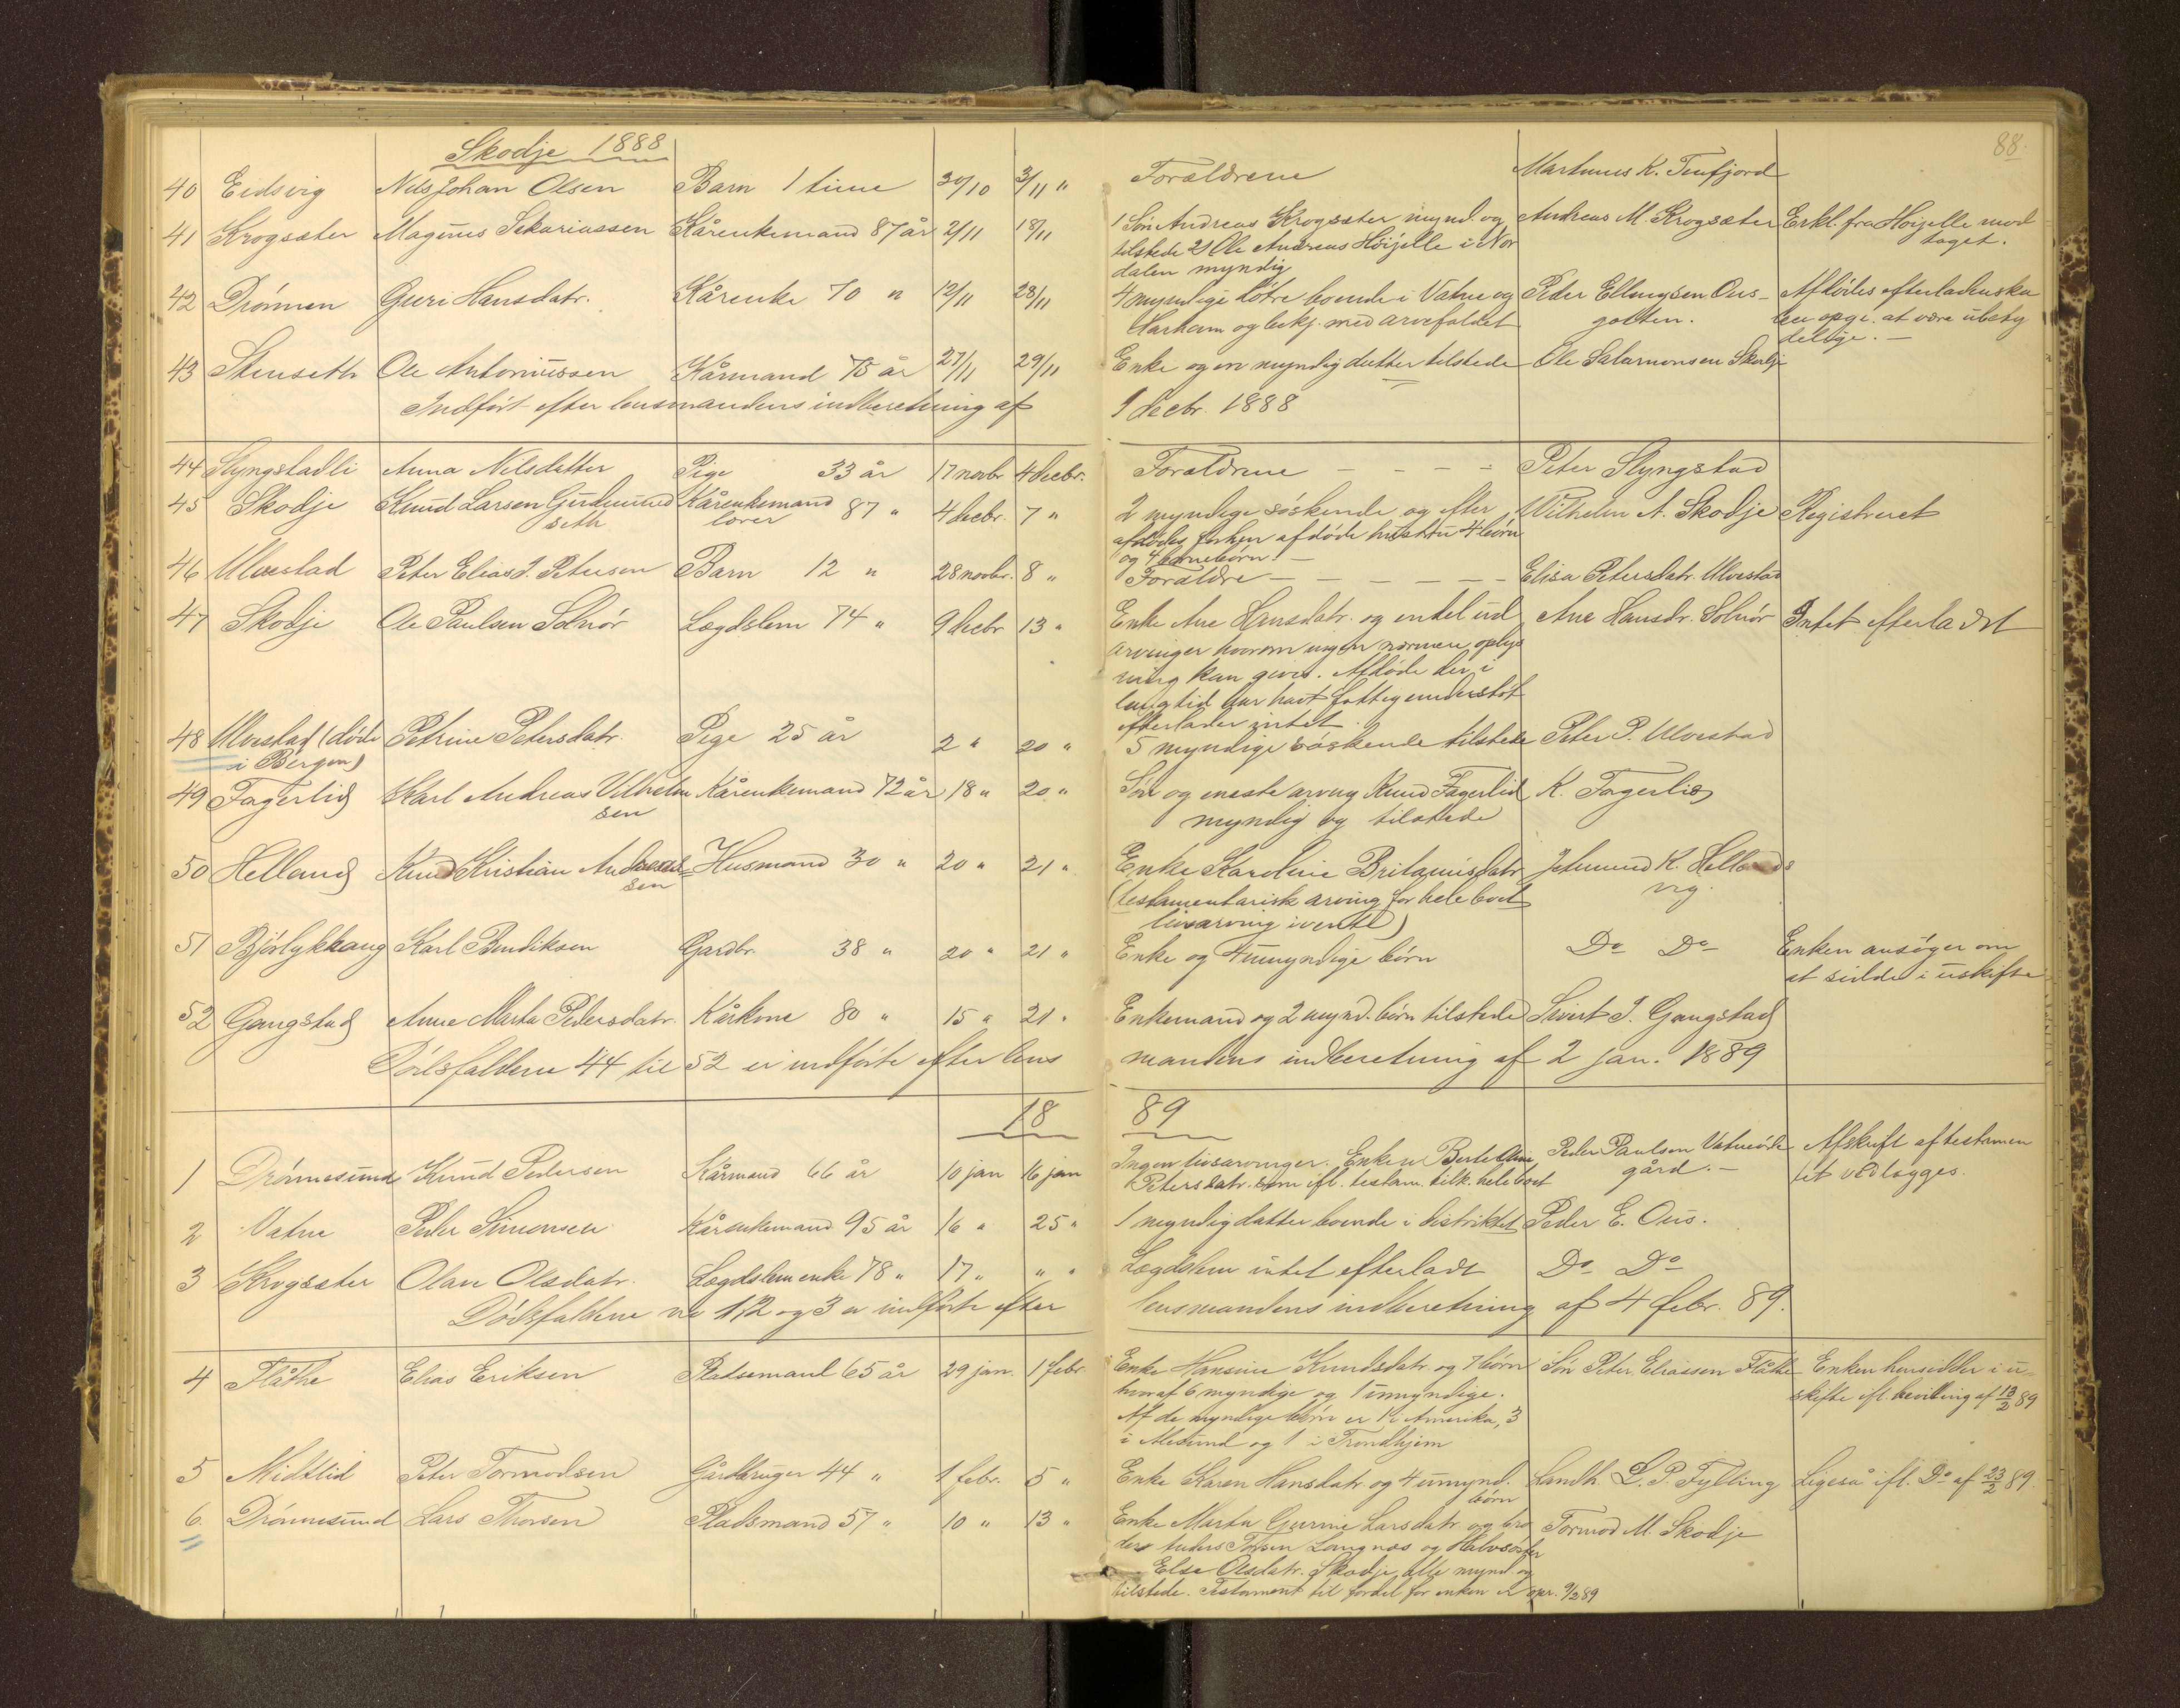 Skodje 1888
88.
40 Eidsvig Nils Johan Olsen Barn 1 time 30/10 3/11 " Forældrene Martinus K. Tenfjord
41 Krogsæter Magnus Sekariassen Kårenkemand 87 år 2/11 18/11 1 Søn Andreas Krogsæter mynd. og Andreas M. Krogsæter Erkl. fra Høijelle mod
tilstede 2) Ole Andreas Høijelle i Nor taget.
dalen myndig
42 Drønnen Guri Hansdatr. Kårenke 70 " 12/11 28/11 4 myndige døtre boende i Vatne og Peder Ellingsen Ous- Afdødes efterladenska
Harham og bekj. med arvefaldet golten. ber opgi. at være ubety
delige. —
43 Stenseth Ole Antoniussen Kårmand 75 år 27/11 29/11 Enke og en myndig datter tilstede Ole Salamonsen Skodje
Indført efter lensmandens indberetning af 1 decbr. 1888
44 Slyngstadli Anna Nilsdatter Pige 33 år 17 novbr 4 decbr. Forældrene - - - - Peter Slyngstad
45 Skodje Knud Larsen Gudmund Kårenkemand 87 " 4 decbr. 7 " 2 myndige søskende og efter Wilhelm A. Skodje Registreret
seth afdødes forhen afdøde hustru 4 børn
og 4 børnebørn. —
46 Ulvestad Peter Elias J. Petersen Barn 12 " 28 novbr. 8 " Forældre - - - - - - Elisa Petersdatr. Ulvestad
47 Skodje Ole Paulsen Solnør Lægdslem 74 " 9 decbr 13 " Enke Ane Hansdatr. og endel ud Ane Hansdr. Solnør Intet efterladt
arvinger hvorom ingen nærmere oplys
ning kan gives. Afdøde der i
lang tid har havt fattigunderstøt
efterlader intet.
48 Ulvestad (døde Petrine Petersdatr. Pige 25 år 2 " 20 " 5 myndige søskende tilstede Peter P. Ulvestad
i Bergen)
49 Fagerlid Karl Andreas Vilhelm Kårenkemand 72 år 18 " 20 " Søn og eneste arving Knud Fagerlid K. Fagerlid
sen myndig og tilstede
50 Helland Knud Kristian Andreas Husmand 30 " 20 " 21 " Enke Karoline Britanusdatr Jetmund K. Hellands
sen (testamentarisk arving for hele boet vig.
livsarving ivente)
51 Bjørlykhaug Karl Bendiksen Gardbr. 38 " 20 " 21 " Enke og 4 umyndige børn Do Do Enken ansøger om
at sidde i uskifte
52 Gangstad Anne Marta Pedersdatr. Kårkone 80 " 15 " 21 " Enkemand og 2 mynd. børn tilstede Sivert J. Gangstad
Dødsfaldene 44 til 52 er indførte efter lens mandens indberetning af 2 jan. 1889
18 89
1 Drønnesund Knud Pedersen Kårmand 66 år 10 jan 16 jan Ingen livsarvinger. Enken Berte Ane Peder Paulsen Vatneøde Afskrift af testamen
Petersdatr. som ifl. testam. tilk. hele boet gård. — tet vedlægges.
2 Vatne Peder Simonsen Kårenkemand 95 år 16 " 25 " 1 myndig datter boende i distriktet Peder E. Ous.
3 Krogsæter Olave Olsdatr. Lægdslem enke 78 " 17 " " " Lægdslem intet efterladt Do Do
Dødsfaldene no 1, 2 og 3 er indførte efter lensmandens indberetning af 4 febr. 89.
4 Flåthe Elias Eriksen Pladsemand 65 år 29 jan. 1 febr. Enke Hansine Knudsdatr. og 7 børn Søn Peter Eliassen Flåthe Enken hensidder i u-
hvoraf 6 myndige og 1 umyndige. skifte ifl. bevilling af 13/2 89
Af de myndige børn er 1 i Amerika, 3
i Alesund og 1 i Trondhjem
5 Midtlid Peter Tormodsen Gårdbruger 44 " 1 febr. 5 " Enke Karen Hansdatr. og 4 umynd. Landh. L. P. Fylling Ligeså ifl. Do af 23/2 89.
børn
6. Drønnesund Lars Thorsen Pladsmand 57 " 10 " 13 " Enke Marta Gurine Larsdatr og bro Tormod M. Skodje
der Anders Torsen Langnæs og Halvsøster
Else Olsdatr. Skodje, alle mynd og
tilstede. Testament til fordel for enken er opr. 9/2 89